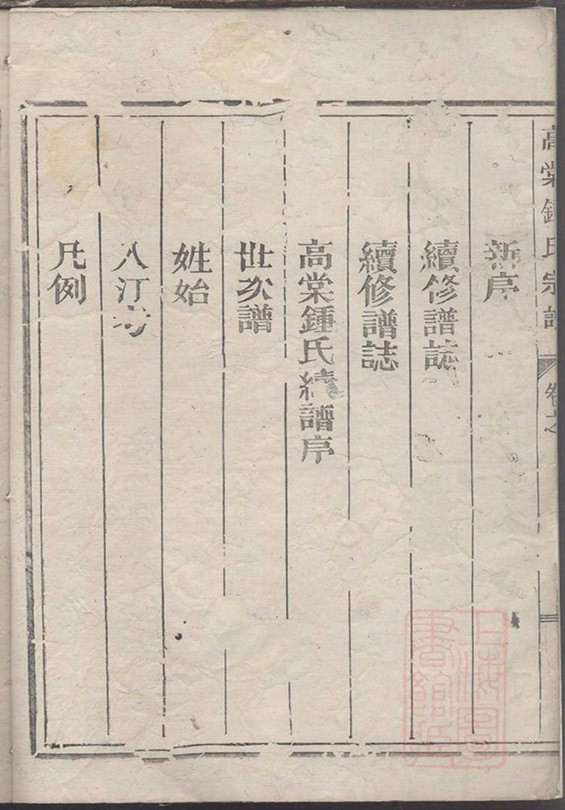 高棠鍾氏宗譜 卷之
新序
續修譜誌
續修譜誌
高棠鍾氏續譜序
世次譜
姓始
入汀考
凡例
上海圖書館藏